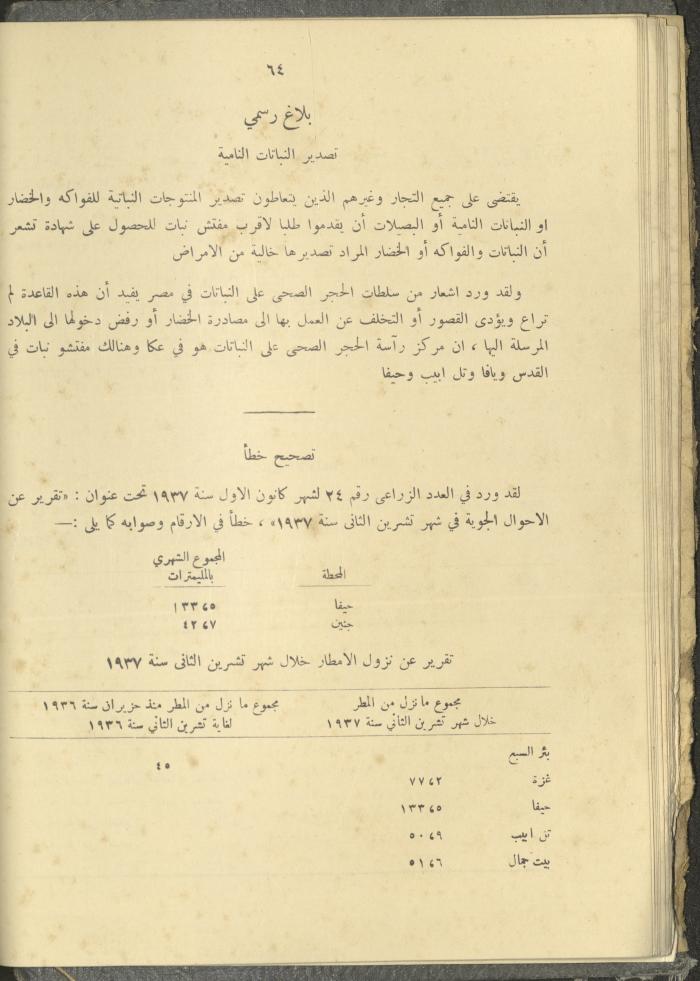 ٦٤
بلاغ رسمي
تصدير النباتات النامية
يقتضى على جميع التجار وغيرهم الذين يتعاطون تصدير المنتوجات النباتية للفواكه والخضار
او النباتات النامية أو البصيلات أن يقدموا طلبا لاقرب مفتش نبات للحصول على شهادة تشعر
أن النباتات والفواكه أو الخضار المراد تصديرها خالية من الامراض
ولقد ورد اشعار من سلطات الحجر الصحى على النباتات في مصر يفيد أن هذه القاعدة لم
تراع ويؤدى القصور أو التخلف عن العمل بها الى مصادرة الخضار أو رفض دخولها الى البلاد
المرسلة اليها ، ان مركز رآسة الحجر الصحى على النباتات هو في عكا وهنالك مفتشو نبات في
القدس ويافا وتل ابيب وحيفا
تصحيح خطأ
لقد ورد في العدد الزراعى رقم ٢٤ لشهر كانون الاول سنة ١٩٣٧ تحت عنوان : «تقرير عن
الاحوال الجوية في شهر تشرين الثانى سنة ١٩٣٧» ، خطأ في الارقام وصوابه كما يلى :—
المحطة المجموع الشهري
بالمليمترات
حيفا ١٣٣،٥
جنين ٤٢،٧
تقرير عن نزول الامطار خلال شهر تشرين الثانى سنة ١٩٣٧
مجموع ما نزل من المطر مجموع ما نزل من المطر منذ حزيران سنة ١٩٣٦
خلال شهر تشرين الثاني سنة ١٩٣٧ لغاية تشرين الثاني سنة ١٩٣٦
بئر السبع
٤٥
غزة ٧٧،٢
حيفا ١٣٣،٥
تل ابيب ٥٠،٩
بيت جمال ٥١،٦